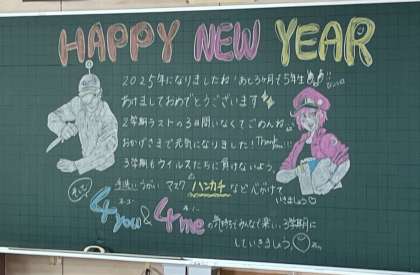 HAPPY NEW YEAR
2025年になりましたね!あと3ヶ月で5年生
あけましておめでとうございます
2学期ラストの3日間いなくてごめんね
おかげさまで元気になりました!Thank you
3学期もウイルスたちに負けないよう
手洗い うがい マスク ハンカチ など心がけて
いきましょう
4 you & 4 me の気持ちでみんなで楽しい3学期に
していきましょう